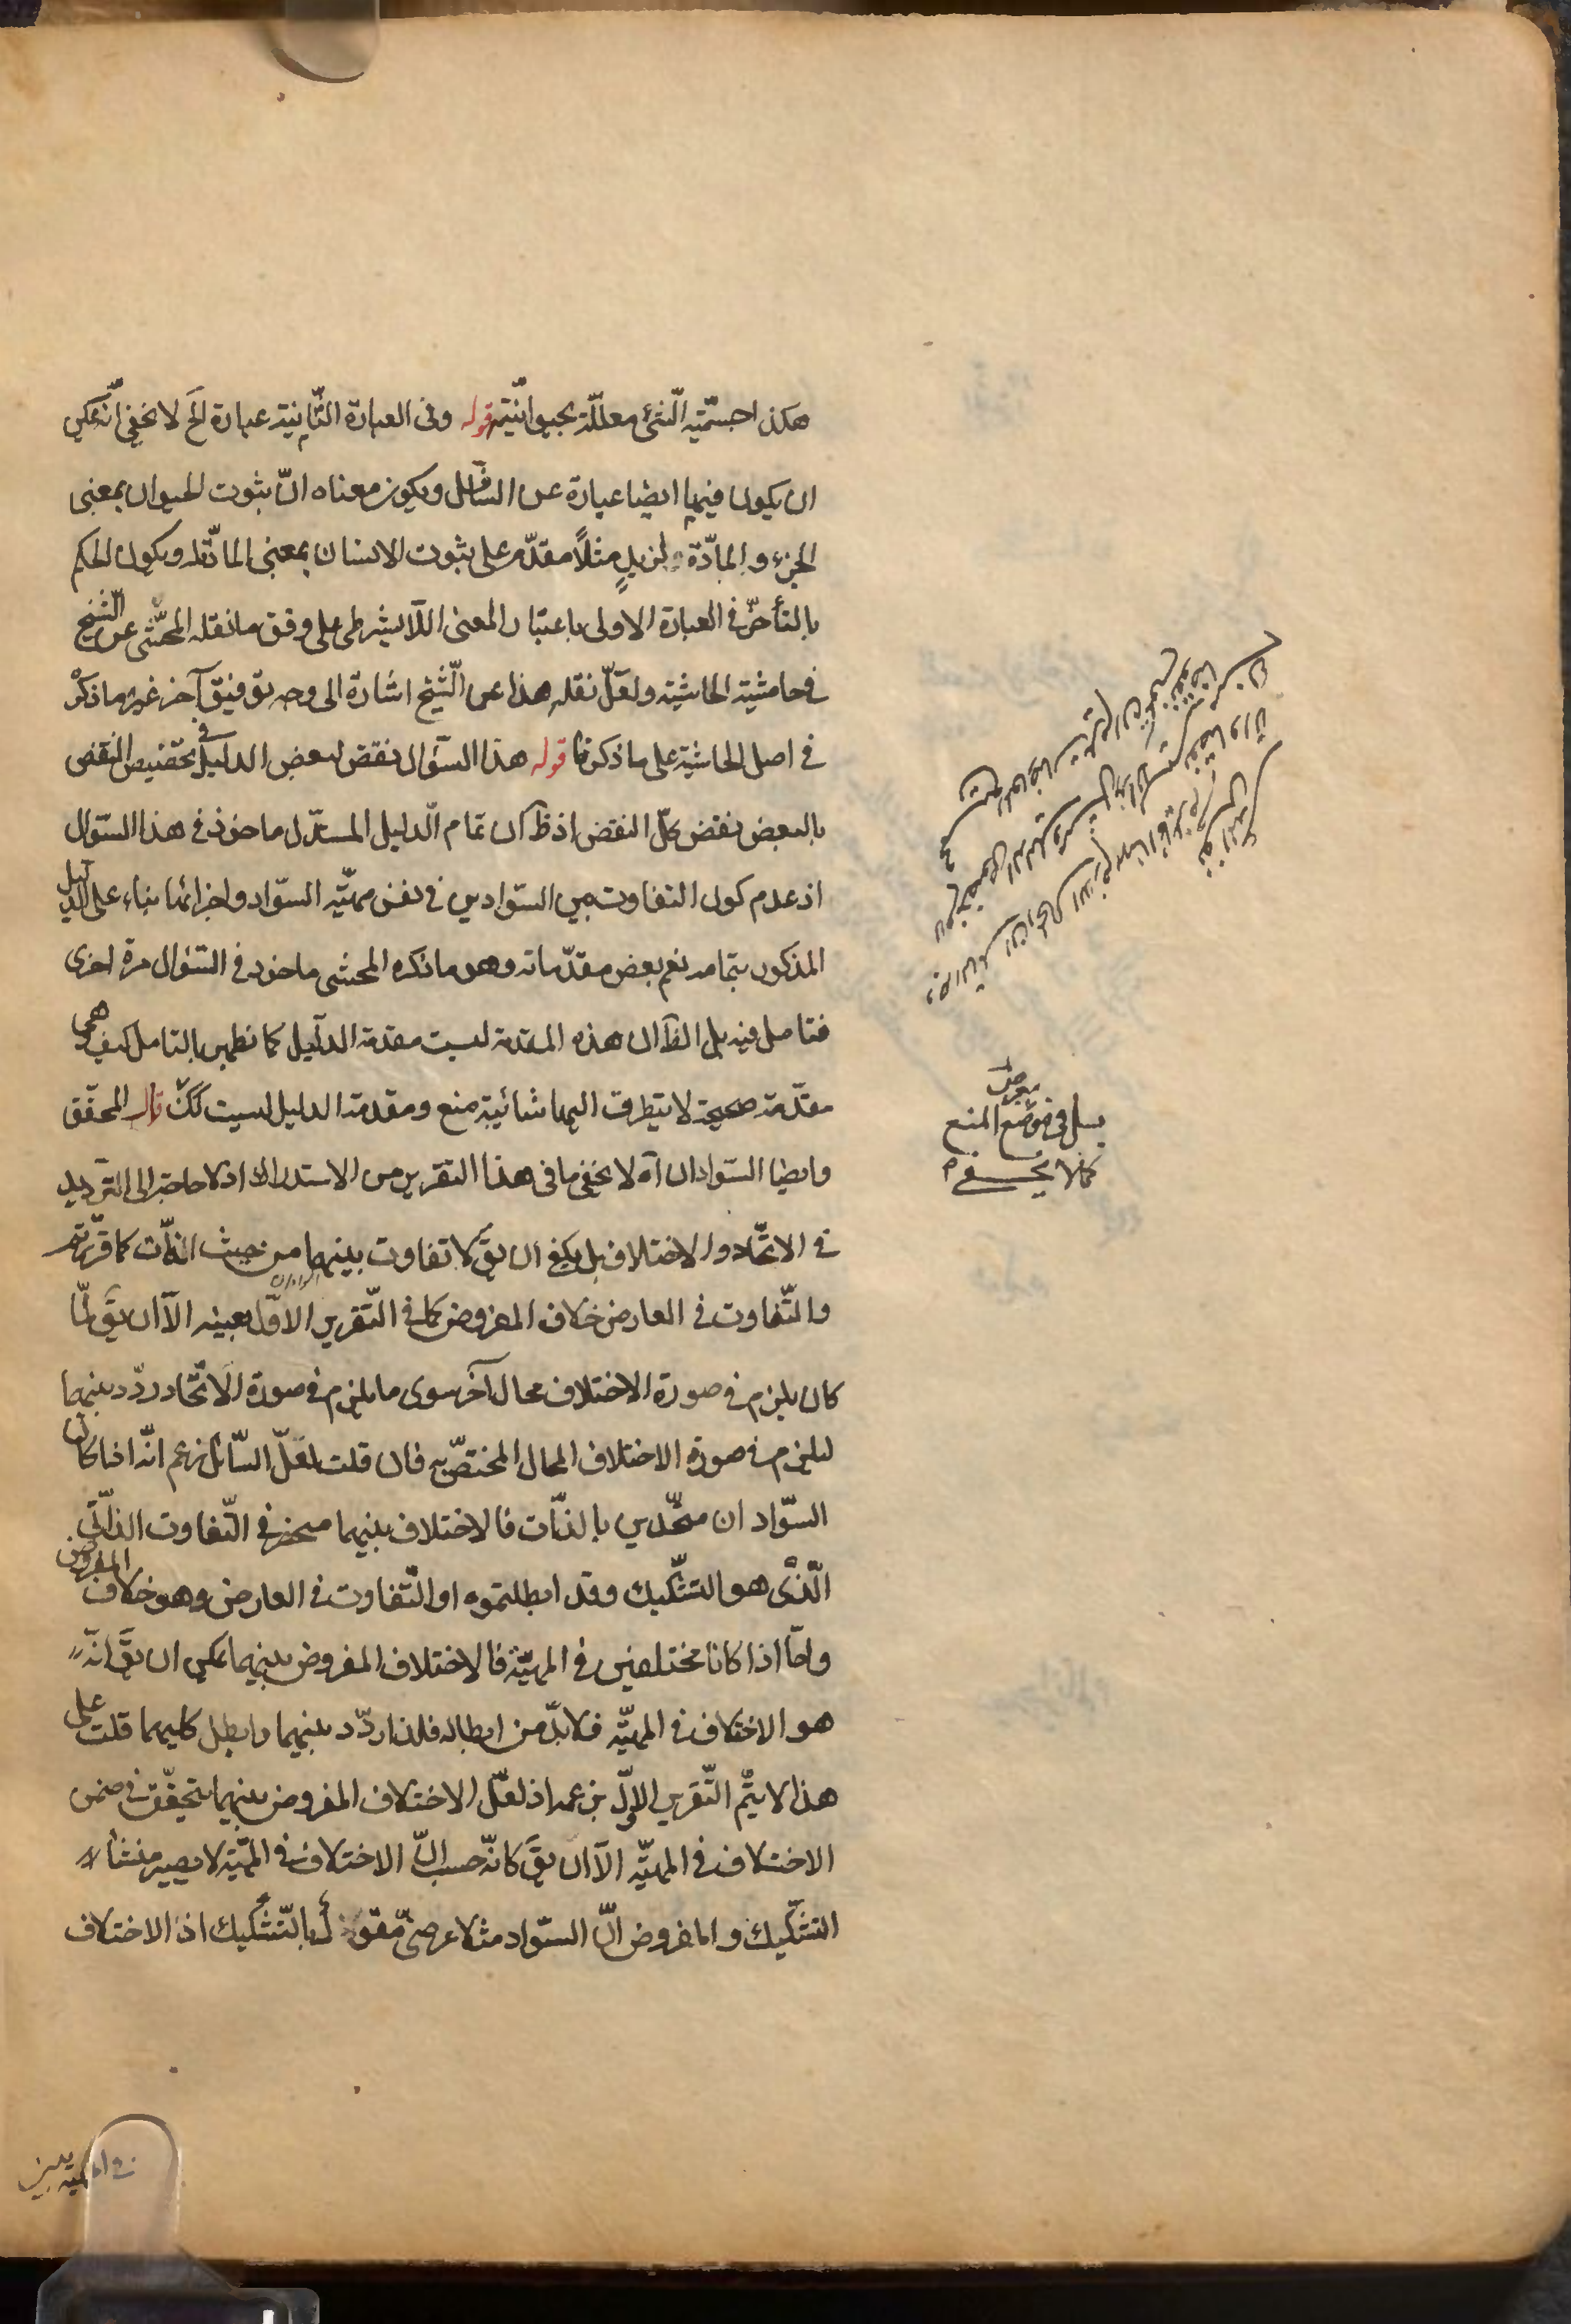 هكذا جسميّة الشّئ معلّلة بحيوانيّته قوله وفى العبارة الثّانية عبارة الخ لا يخفى انّه يمكن
ان يكون فيها ايضا عبارة عن السافل ويكون معناه انّ ثبوت الحيوان بمعنى
الجزء والمادّة لزيدٍ مثلاً مقدّم على ثبوت الانسان بمعنى المادّة له ويكون الحكم
بالتأخّر فى العبارة الاولى باعتبار المعنى اللّا بشرطى على وفق ما نقله المحشّى عن الشّيخ
فى حاشية الحاشية ولعلّ نقله هذا عن الشّيخ اشارة الى وجه توفيق آخر غير ما ذكر
فى اصل الحاشية على ما ذكرنا قوله هذا السؤال نقض لبعض الدليل فى تخصيص النقض
بالبعض نقض كلّ النقض اذ ظ ان تمام الدّليل المستدل ماخوذ فى هذا السّؤال
اذ عدم كون التفاوت بين السّوادين فى نفس مهيّة السّواد واجزائها بناء على الدليل
المذكور بتمامه نعم بعض مقدّماته وهو ما ذكره المحشى ماخوذ فى السّؤال مرة اخرى
فتامل فيه بل الظ ان هذه المقدمة ليست مقدمة الدّليل كما يظهر بالتامل كيف هى
مقدّمة صحيحة لا يتطرق اليها شائبة منع ومقدمة الدليل ليست كك قال المحقّق
وايضا السّوادان آه لا يخفى ما فى هذا التقرير من الاستدراك اذ لا حاجة الى التّرديد
فى الاتّحاد والاختلاف بل يكفى ان يق لا تفاوت بينهما من حيث الذّات كما قرّرتم
والتّفاوت فى العارض خلاف المفروض كما فى التّقرير الاوّل بعينه الّا ان يق لمّا
كان يلزم فى صورة الاختلاف محال آخر سوى ما يلزم فى صورة الاتّحاد ردّد بينهما
ليلزم فى صورة الاختلاف المحال المختصّ به فان قلت لعلّ السّائل زعم انّه اذا كان
السّوادان متّحدين بالذّات فالاختلاف بينهما منحصر فى التّفاوت الذّاتى
الّذى هو التشكيك وقد ابطلتموه او التّفاوت فى العارض وهو خلاف المفروض
وامّا اذا كانا مختلفين فى المهيّة فالاختلاف المفروض بينهما يمكن ان يق انّه
هو الاختلاف فى المهيّة فلا بدّ من ابطاله فلذا ردّد بينهما وابطل كليهما قلت على
هذا لا يتمّ التّقرير الاوّل بزعمه اذ لعلّ الاختلاف المفروض بينهما يتحقّق فى ضمن
الاختلاف فى المهيّة الّا ان يق كانّه حسب انّ الاختلاف فى المهيّة لا يصير منشأ
التشكيك والمفروض انّ السّواد مثلا عرضىّ مقول بالتّشكيك اذ الاختلاف
بل فى موضع المنع
كما لا يخفى